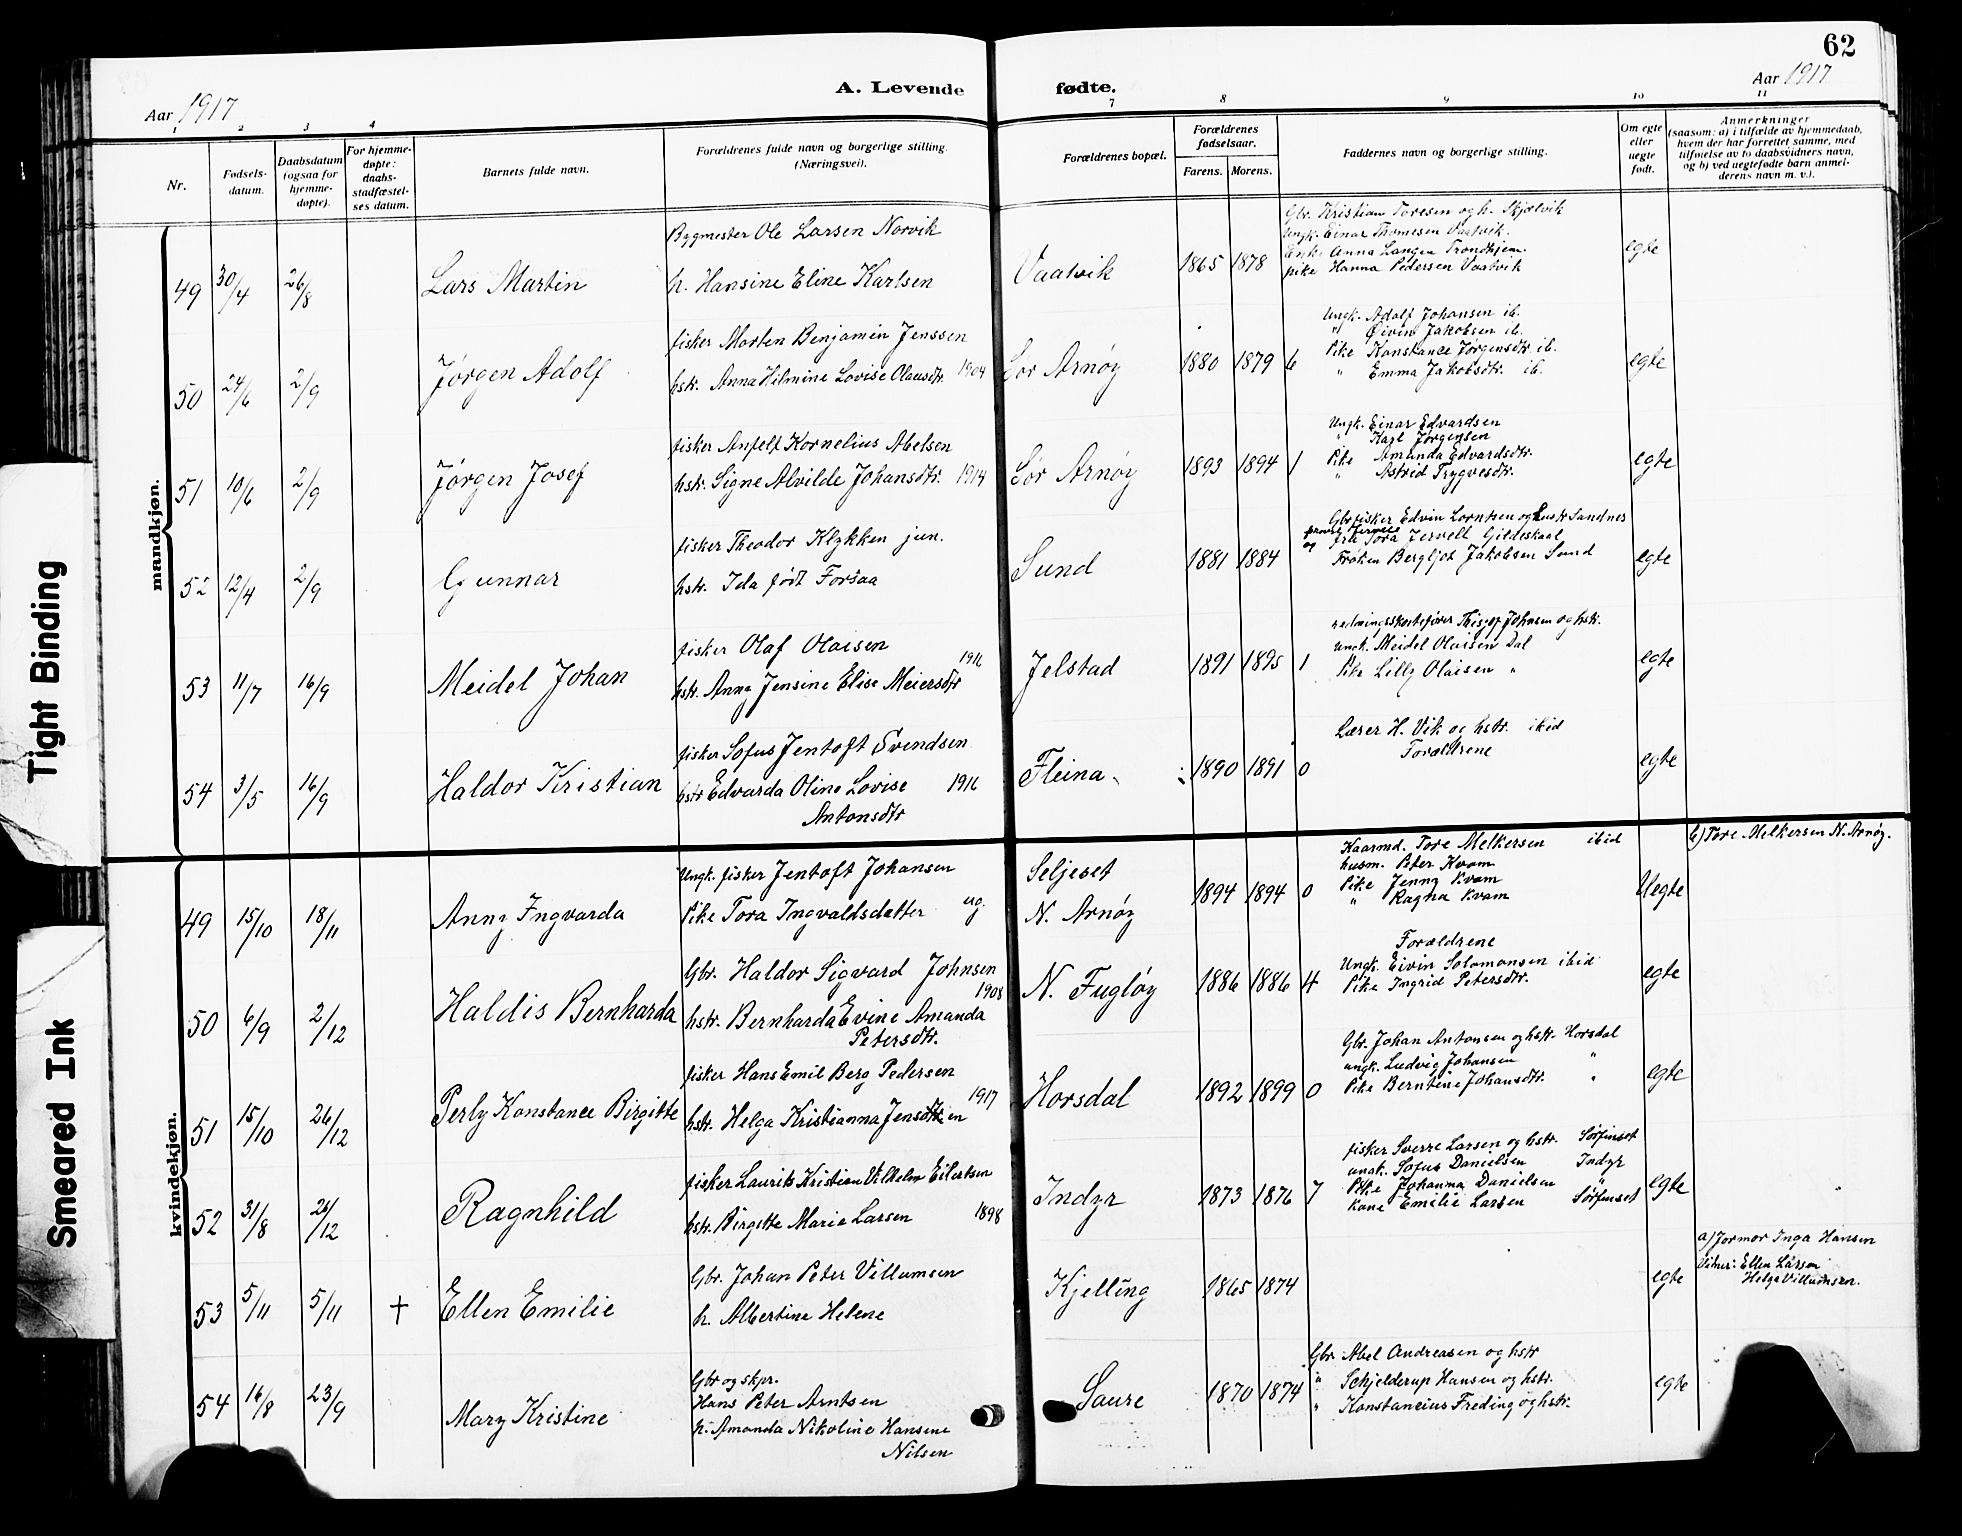 62
Aar 1917
A. Levende fødte.
Aar 1917
1 2 3 4 7 8 9 10 11
Nr.
Fødsels-
datum.
Daabsdatum
(ogsaa for
hjemme-
døpte).
For hjemme-
døpte:
daabs-
stadfæstel-
ses datum.
Barnets fulde navn.
Forældrenes fulde navn og borgerlige stilling.
(Næringsvei).
Forældrenes bopæl.
Forældrenes
fødselsaar.
Farens. Morens.
Faddernes navn og borgerlige stilling.
Om egte
eller
uegte
født.
Anmerkninger
(saasom: a) i tilfælde av hjemmedaab,
hvem der har forrettet samme, med
tilføielse av to daabsvidners navn,
og b) ved uegtefødte barn anmel-
derens navn m. v.).
mandkjøn.
49 30/4 26/8 Lars Martin
Bygmester Ole Larsen Norvik
h. Hansine Eline Karlsen
Vaatvik 1865 1878
Gbr. Kristian Toresen og h. Skjælvik
Ungk. Einar Thomesen Vaatvik
Enk. Anna Langen Trondhjem
pike Hanna Pedersen Vaatvik
egte
50 24/6 2/9 Jørgen Adolf
fisker Morten Benjamin Jenssen
hstr. Anna Hilmine Lovise Olausdtr. 1904
Sør Arnøy 1880 1879 6
Ungk. Adolf Johansen ib.
" Øivin Jakobsen ib.
Pike Konstance Jørgensdtr. ib.
" Emma Jakobsdtr. ib.
egte
51 10/6 2/9 Jørgen Josef
fisker Anfelt Kornelius Abelsen
hstr. Signe Alvilde Johansdtr. 1914
Sør Arnøy 1893 1894 1
Ungk. Einar Edvardsen
" Karl Jørgensen
Pike Amanda Edvardsdtr.
" Astrid Trygvesdtr.
egte
52 12/4 2/9 Gunnar
fisker Theodor Klykken jun.
hstr. Ida født Forsaa
Sund 1881 1884
Gbr fisker Edvin Lorntsen og hustr Sandnes
og fru Tora Jervell Gildeskaal
Frøken Bergljot Jakobsen Sund
egte
53 11/7 16/9 Meidel Johan
fisker Olaf Olaisen
hstr. Anny Jensine Elise Meiersdtr 1916
Jelstad 1891 1895 1
Johnsen og hstr.
Ungk. Meidel Olaisen Dal
Pike Lilly Olaisen "
egte
54 3/5 16/9 Haldor Kristian
fisker Sofus Jentoft Svendsen
hstr Edvarda Oline Lovise 1916
Antonsdtr
Fleina 1890 1891 0
Lærer H. Vik og hstr. ibid
Forældrene
egte
kvindekjøn.
49 15/10 18/11 Anny Ingvarda
Ungk. fisker Jentoft Johansen
Pike Tora Ingvaldsdatter ug.
Seljeset
N. Arnøy
1894 1894 0
Kaarmd. Tore Melkersen ibid
husm. Peter Kvam
Pike Jenny Kvam
" Ragna Kvam
Uegte
b) Tore Melkersen N. Arnøy.
50 6/9 2/12 Haldis Bernharda
Gbr. Haldor Sigvard Johnsen
1908
hstr. Bernharda Evine Amanda
Petersdtr.
N. Fugløy 1886 1886 4
Forældrene
Ungk. Eivin Solomonsen ibid
Pike Ingrid Petersdtr.
egte
51 15/10 26/12 Perly Konstance Birgitte
fisker Hans Emil Berg Pedersen
1917
hstr. Helga Kristianna Jensen
Horsdal 1892 1899 0
Gbr. Johan Antonsen og hstr. Horsdal
ungk. Ludvig Johansen "
Pike Berntine Johansdtr. "
egte
52 31/8 26/12 Ragnhild
fisker Laurits Kristian Vilhelm Eilertsen
hstr. Birgitte Marie Larsen 1898
Indyr 1873 1876 7
fisker Sverre Larsen og hstr. Sørfinset
ungk. Sofus Danielsen Indyr
Pike Johanna Danielsen "
Kone Emilie Larsen Sørfinset
egte
53 5/11 5/11 + Ellen Emilie
Gbr. Johan Peter Villumsen
h. Albertine Helene
Kjelling 1865 1874
egte
a) Jormor Inga Hansen
Vitner: Ellen Larsen
Helga Villumsen.
54 16/8 23/9 Mary Kristine
Gbr og skpr.
Hans Peter Arntsen
h. Amanda Nikoline Hansine
Nilsen
Saure 1870 1874
Gbr. Abel Andreasen og hstr
" Schjelderup Hansen og hstr.
" Konstancius Freding og hstr.
egte
Tight Binding
Smeared Ink